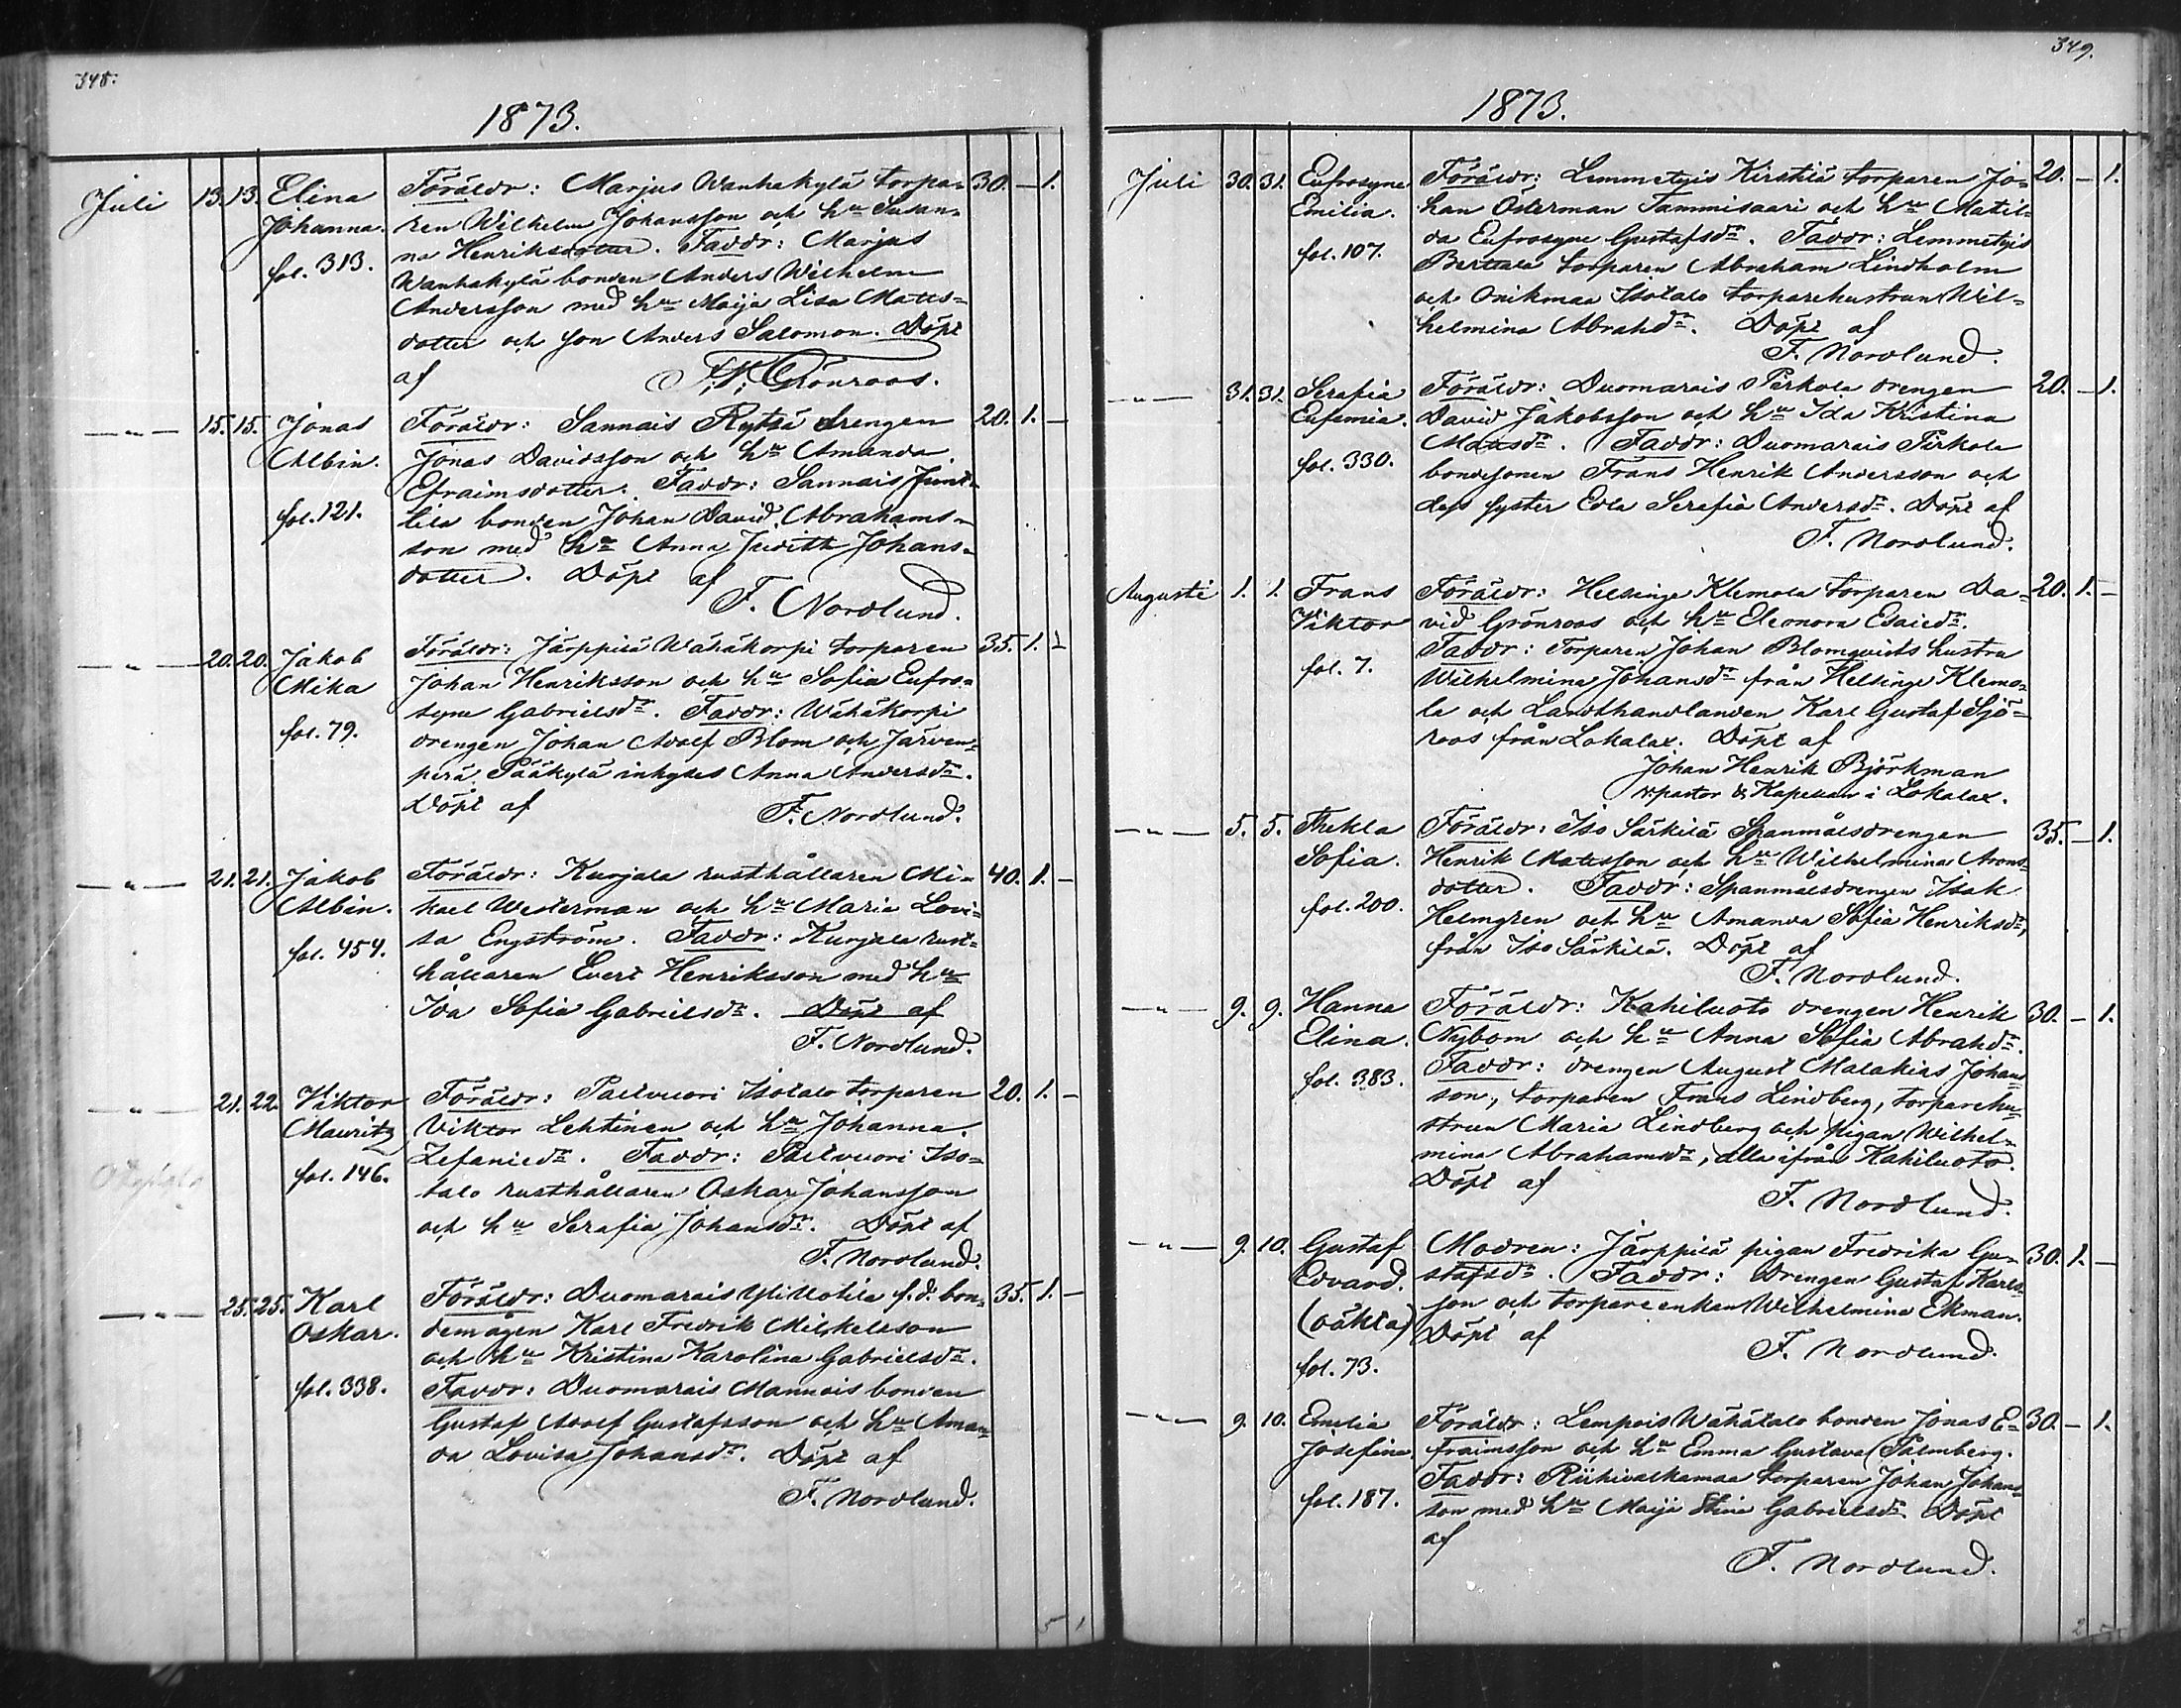 348.
1873.
Juli 13. 13. Elina Johanna. fol. 313.
Föräldr: Marjus Wanhakylä torpa- 30. — 1.
ren Wilhelm Johansson och hu Susan-
na Henriksdotter. Faddr: Marjus
Wanhakylä bonden Anders Wilhelm
Andersson med hu Maija Lisa Matts-
dotter och son Anders Salomon. Döpt
af F. K. Grönroos.
—„— 15. 15. Jonas Albin. fol. 121.
Föräldr: Sannais Rytsä drengen 20. 1. —
Jonas Davidsson och hu Amanda
Efraimsdotter. Faddr: Sannais Junt-
tila bonden Johan David Abrahams-
son med hu Anna Judith Johans-
dotter. Döpt af
F. Nordlund.
—„— 20. 20. Jakob Mika fol. 79.
Föräldr: Järppilä Wähäkorpi torparen 35. 1. —
Johan Henriksson och hu Sofia Eufro-
syne Gabrielsdr. Faddr: Wähäkorpi
drengen Johan Adolf Blom och Järven-
perä Pääkylä inhyses Anna Andersdr.
Döpt af F. Nordlund.
—„— 21. 21. Jakob Albin. fol. 454.
Föräldr: Kunjala rusthållaren Mi- 40. 1. —
kael Westerman och hu Maria Lovi-
sa Engström. Faddr: Kunjala rust-
hållaren Evert Henriksson med hu
Ida Sofia Gabrielsdr. Döpt af
F. Nordlund.
—„— 21. 22. Viktor Mauritz fol. 146.
Föräldr: Palvuori Isotalo torparen 20. 1. —
Viktor Lehtinen och hu Johanna
Zefaniedr. Faddr: Palvuori Iso-
talo rusthållaren Oskar Johansson
och hu Serafia Johansdr. Döpt af
F. Nordlund.
—„— 25. 25. Karl Oskar. fol. 338.
Föräldr: Duomarais Yli Uotila f.d. bon- 35. 1. —
demågen Karl Fredrik Mickelsson
och hu Kristina Karolina Gabrielsdr.
Faddr: Duomarais Mannois bonden
Gustaf Adolf Gustafsson och hu Aman-
da Lovisa Johansdr. Döpt af
F. Nordlund.
5 1
349.
1873.
Juli 30. 31. Eufrosyne Emilia. fol. 107.
Föräldr: Lemmetyis Kirstilä torparen Jo- 20. — 1.
han Österman Tammisaari och hu Matil-
da Eufrosyne Gustafsdr. Faddr: Lemmetyis
Berttala torparen Abraham Lindholm
och Onikmaa Isotalo torparehustrun Wil-
helmina Abrahdr. Döpt af
F. Nordlund.
—„— 31. 31. Serafia Eufemia. fol. 330.
Föräldr: Duomarais Pirkola drengen 20. — 1.
David Jakobsson och hu Ida Kristina
Matsdr. Faddr: Duomarais Pirkola
bondesonen Frans Henrik Andersson och
dess syster Edla Serafia Andersdr. Döpt af
F. Nordlund.
Augusti 1. 1. Frans Viktor fol. 7.
Föräldr: Helsinge Klemola torparen Da- 20. 1. —
vid Grönroos och hu Eleonora Esaiedr.
Faddr: Torparen Johan Blomqvists hustru
Wilhelmina Johansdr från Helsinge Klemo-
la och Landthandlanden Karl Gustaf Sjö-
roos från Lokalax. Döpt af
Johan Henrik Björkman
v. pastor & Kapellan i Lokalax.
—„— 5. 5. Thekla Sofia. fol. 200.
Föräldr: Iso Särkilä Spanmålsdrengen 35. — 1.
Henrik Matsson och hu Wilhelmina Arons-
dotter. Faddr: Spanmålsdrengen Isak
Helmgren och hu Amanda Sofia Henriksdr,
från Iso Särkilä. Döpt af
F. Nordlund.
—„— 9. 9. Hanna Elina. fol. 383.
Föräldr: Kahiluoto drengen Henrik 30. — 1.
Nybom och hu Anna Sofia Abrahdr.
Faddr: drengen August Malakias Johans-
son, torparen Frans Lindberg, torparehu-
strun Maria Lindberg och pigan Wilhel-
mina Abrahamsdr, alla ifrån Kahiluoto.
Döpt af
F. Nordlund.
—„— 9. 10. Gustaf Edvard. (oäkta) fol. 73.
Modren: Järppilä pigan Fredrika Gu- 30. 1. —
stafsdr. Faddr: drengen Gustaf Karls-
son och torpareenkan Wilhelmina Ekman.
Döpt af
F. Nordlund.
—„— 9. 10. Emilia Josefina fol. 187.
Föräldr: Lempois Wähätalo bonden Jonas E- 30. — 1.
fraimsson och hu Emma Gustava Palmberg.
Faddr: Riihivalkamaa torparen Johan Johans-
son med hu Maija Stina Gabrielsdr. Döpt
af
F. Nordlund.